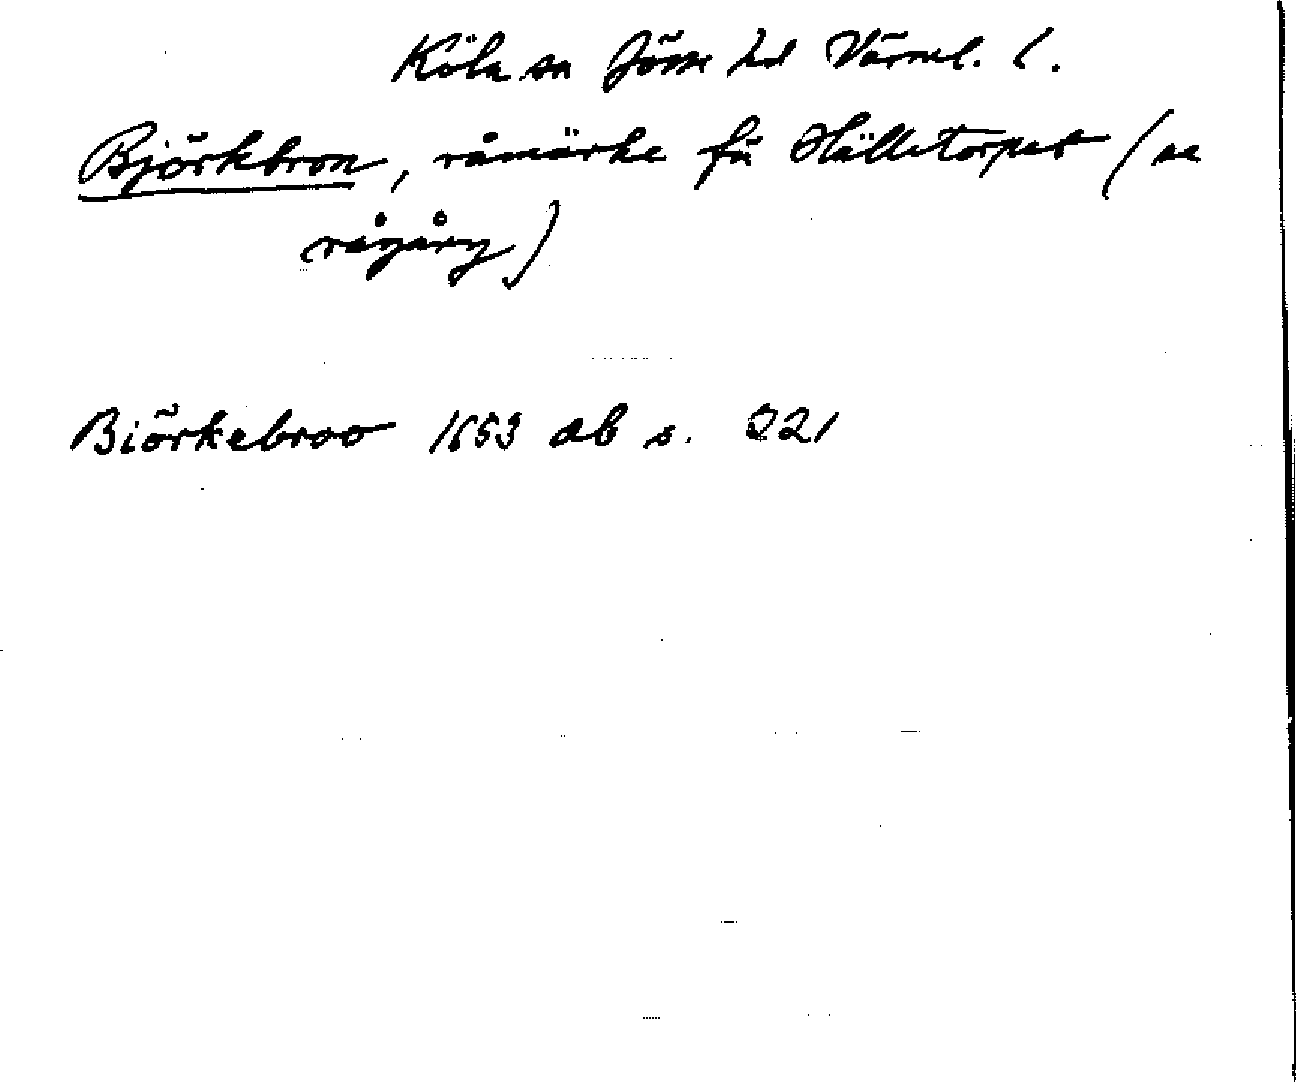 Köla sn Jösse hd Värml. l.
Björkbron, råmärke för Hälletorpet (se
rågång)
Biörkebroo 1653 ab s. 221